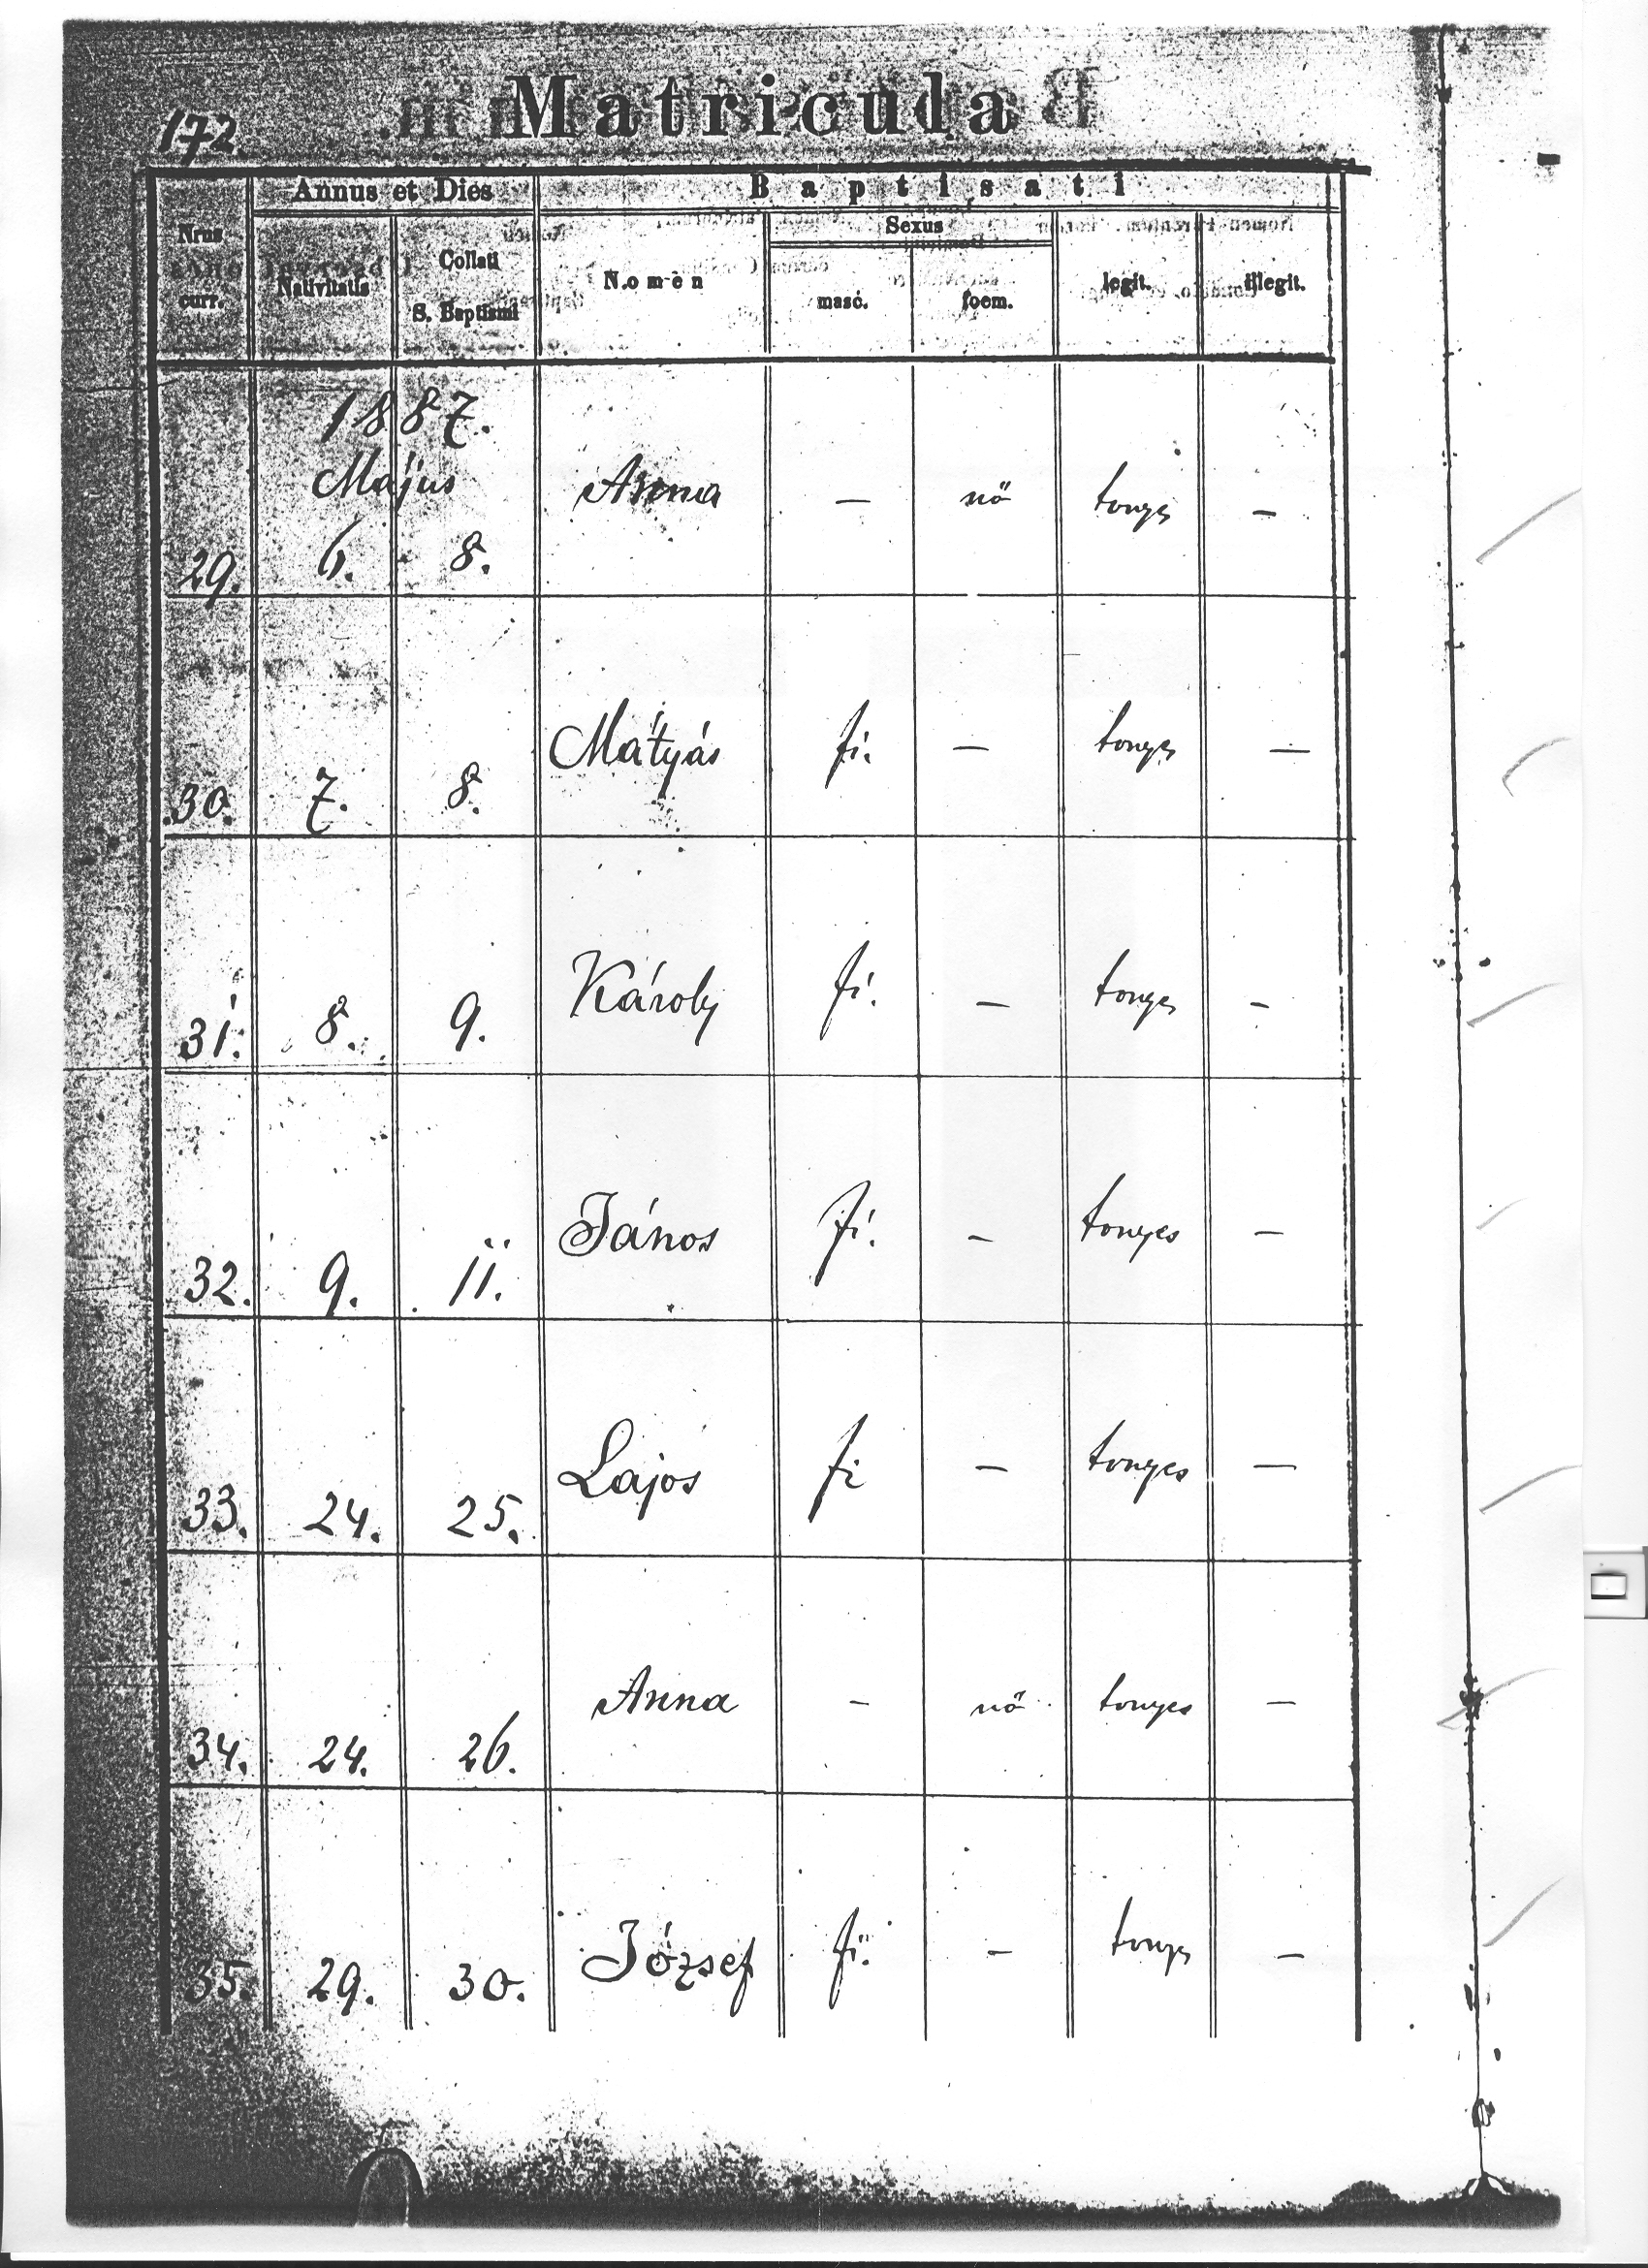 172.
Matricula
Annus et Dies
Baptisati
Nrus
curr.
Nativitatis
Collati
S. Baptismi
Nomen
Sexus
masc.
foem.
legit.
illegit.
1887.
Május
29. 6. 8. Anna — nő tvnyes —
30. 7. 8. Mátyás fi. — tvnyes —
31. 8. 9. Károly fi. — tvnyes —
32. 9. 11. János fi. — tvnyes —
33. 24. 25. Lajos fi — tvnyes —
34. 24. 26. Anna — nő tvnyes —
35. 29. 30. József fi. — tvnyes —